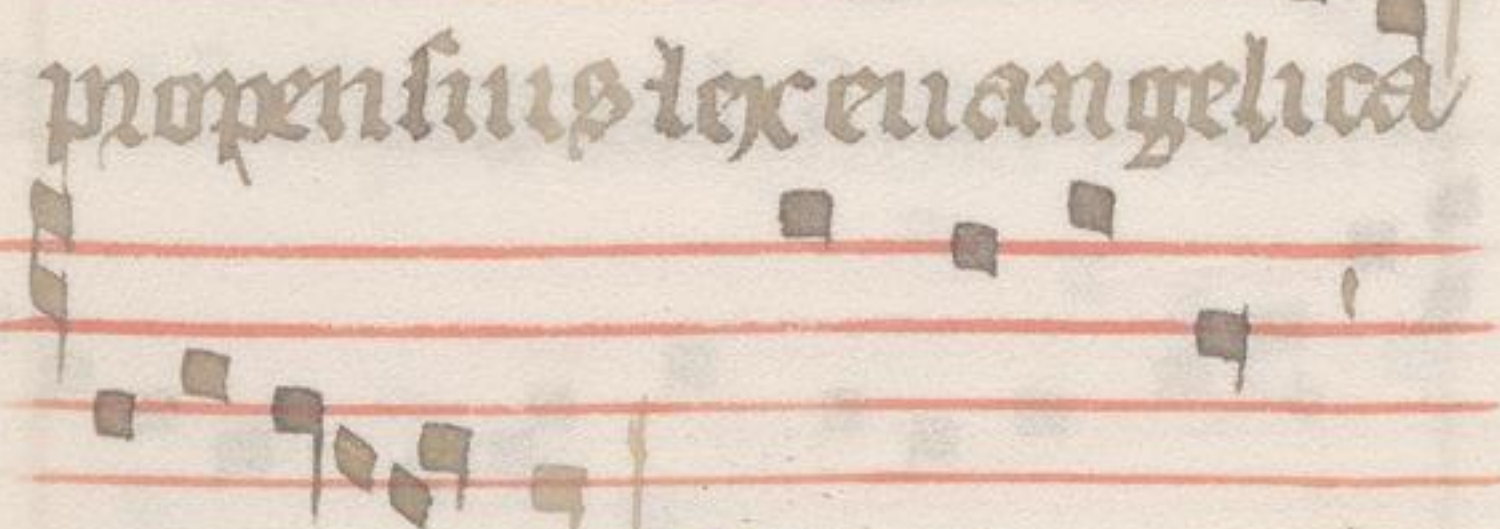 propensius lex euangelica